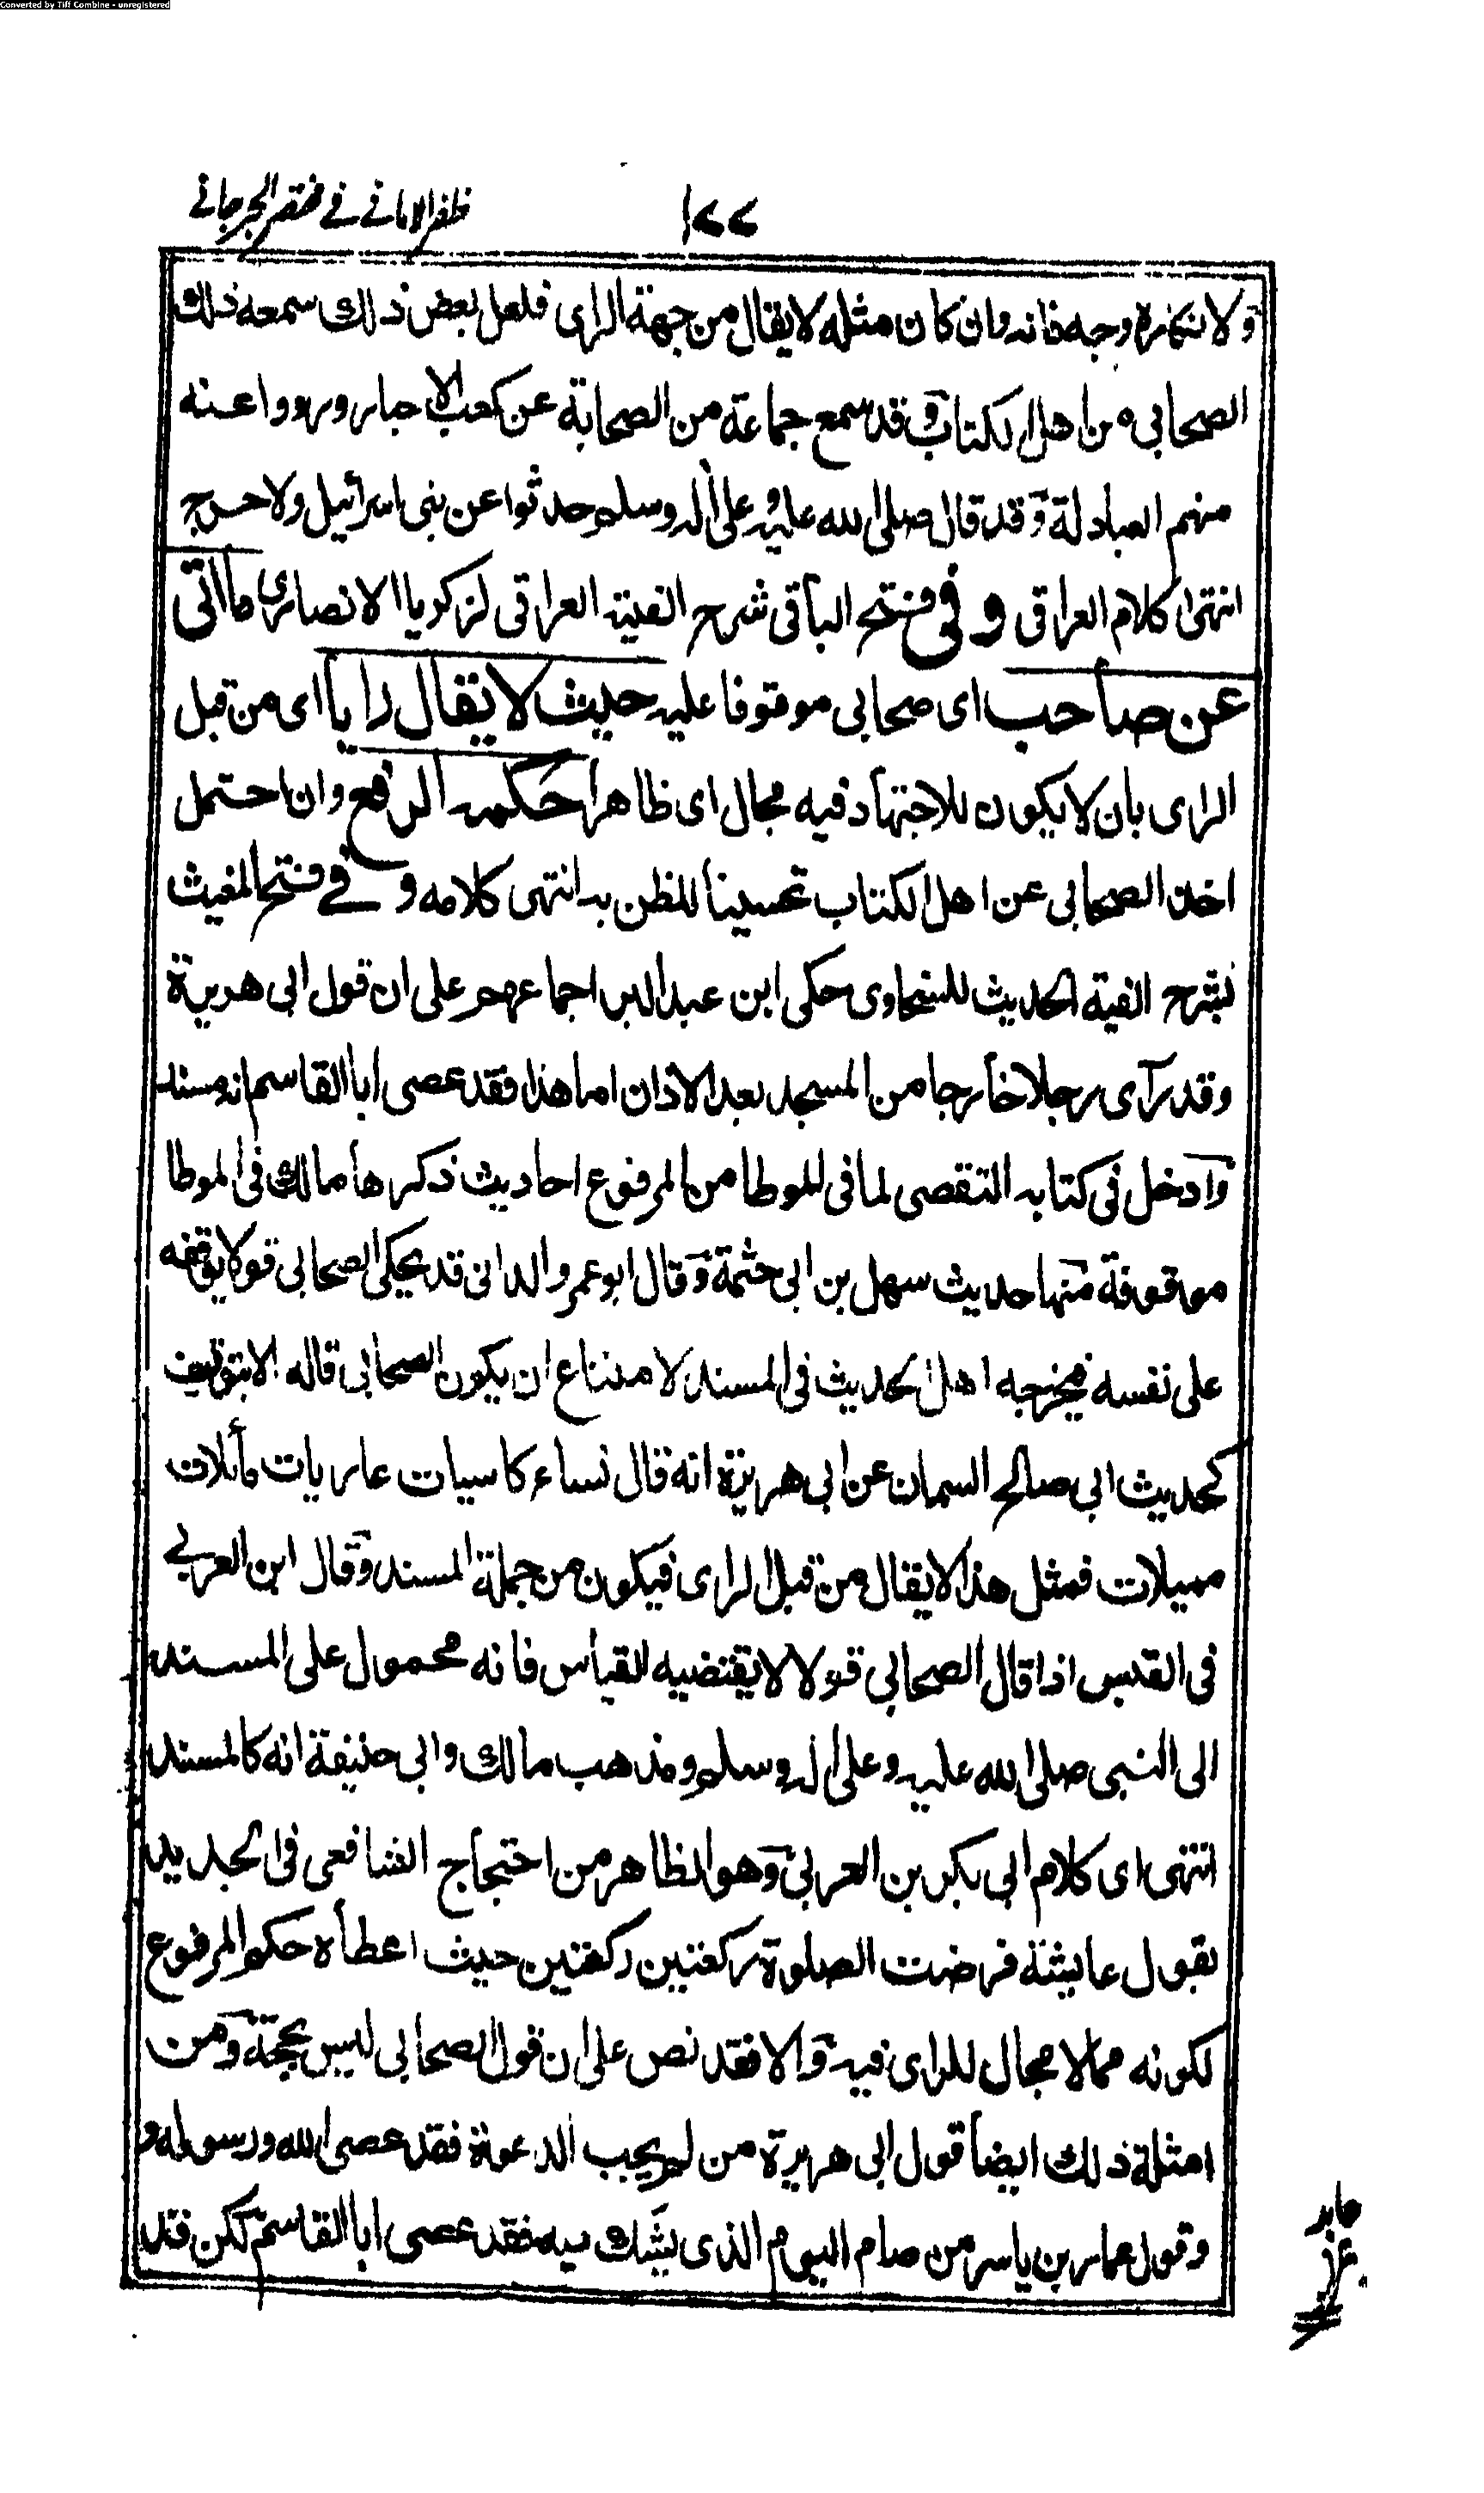 Converted by Tiff Combine - unregistered
ظفر الامانی فی مختصر الجرجانی
١٧٧
ولانكاره وجه فانه وان كان مثله لا يقال من جهة الرای فلعل بعض ذلك سمعه ذلك
الصحابی من اهل الكتاب وقد سمع جماعة من الصحابة عن كعب الاحبار ورووا عنه
منهم العبادلة وقد قال صلی الله عليه وعلی اله وسلم حدثوا عن بنی اسرائيل ولا حرج
انتهی كلام العراقی وفی فتح الباقی شرح الفية العراقی لزكريا الانصاری ما اتی
عن صاحب ای صحابی موقوفا عليه حيث لا يقال رايا ای من قبل
الرای بان لا يكون للاجتهاد فيه مجال ای ظاهرا حكمه الرفع وان احتمل
اخذ الصحابی عن اهل الكتاب تحسينا للظن به انتهی كلامه وفی فتح المغيث
بشرح الفية الحديث للسخاوی حكی ابن عبد البر اجماعهم علی ان قول ابی هريرة
وقد رآی رجلا خارجا من المسجد بعد الاذان اما هذا فقد عصی ابا القاسم انه مسند
وادخل فی كتابه التقصی لما فی الموطا من المرفوع احاديث ذكرها مالك فی الموطا
موقوفة منها حديث سهل بن ابی حثمة وقال ابو عمرو الدانی قد يحكی الصحابی قولا يوقفه
علی نفسه فيخرجه اهل الحديث فی المسند لامتناع ان يكون الصحابی قاله الا بتوقيف
كحديث ابی صالح السمان عن ابی هريرة انه قال نساء كاسيات عاريات مائلات
مميلات فمثل هذا لا يقال من قبل الرای فيكون من جملة المسند وقال ابن العربی
فی القبس اذا قال الصحابی قولا لا يقتضيه القياس فانه محمول علی المسند
الی النبی صلی الله عليه وعلی اله وسلم ومذهب مالك وابی حنيفة انه كالمسند
انتهی ای كلام ابی بكر بن العربی وهو الظاهر من احتجاج الشافعی فی الجديد
بقول عايشة فرضت الصلوة ركعتين ركعتين حيث اعطاه حكم المرفوع
لكونه مما لا مجال للرای فيه والا فقد نص علی ان قول الصحابی ليس بحجة ومن
امثلة ذلك ايضا قول ابی هريرة من لم يجب الدعوة فقد عصی الله ورسوله و
وقول عمار بن ياسر من صام اليوم الذی يشك فيه فقد عصی ابا القاسم لكن فقد